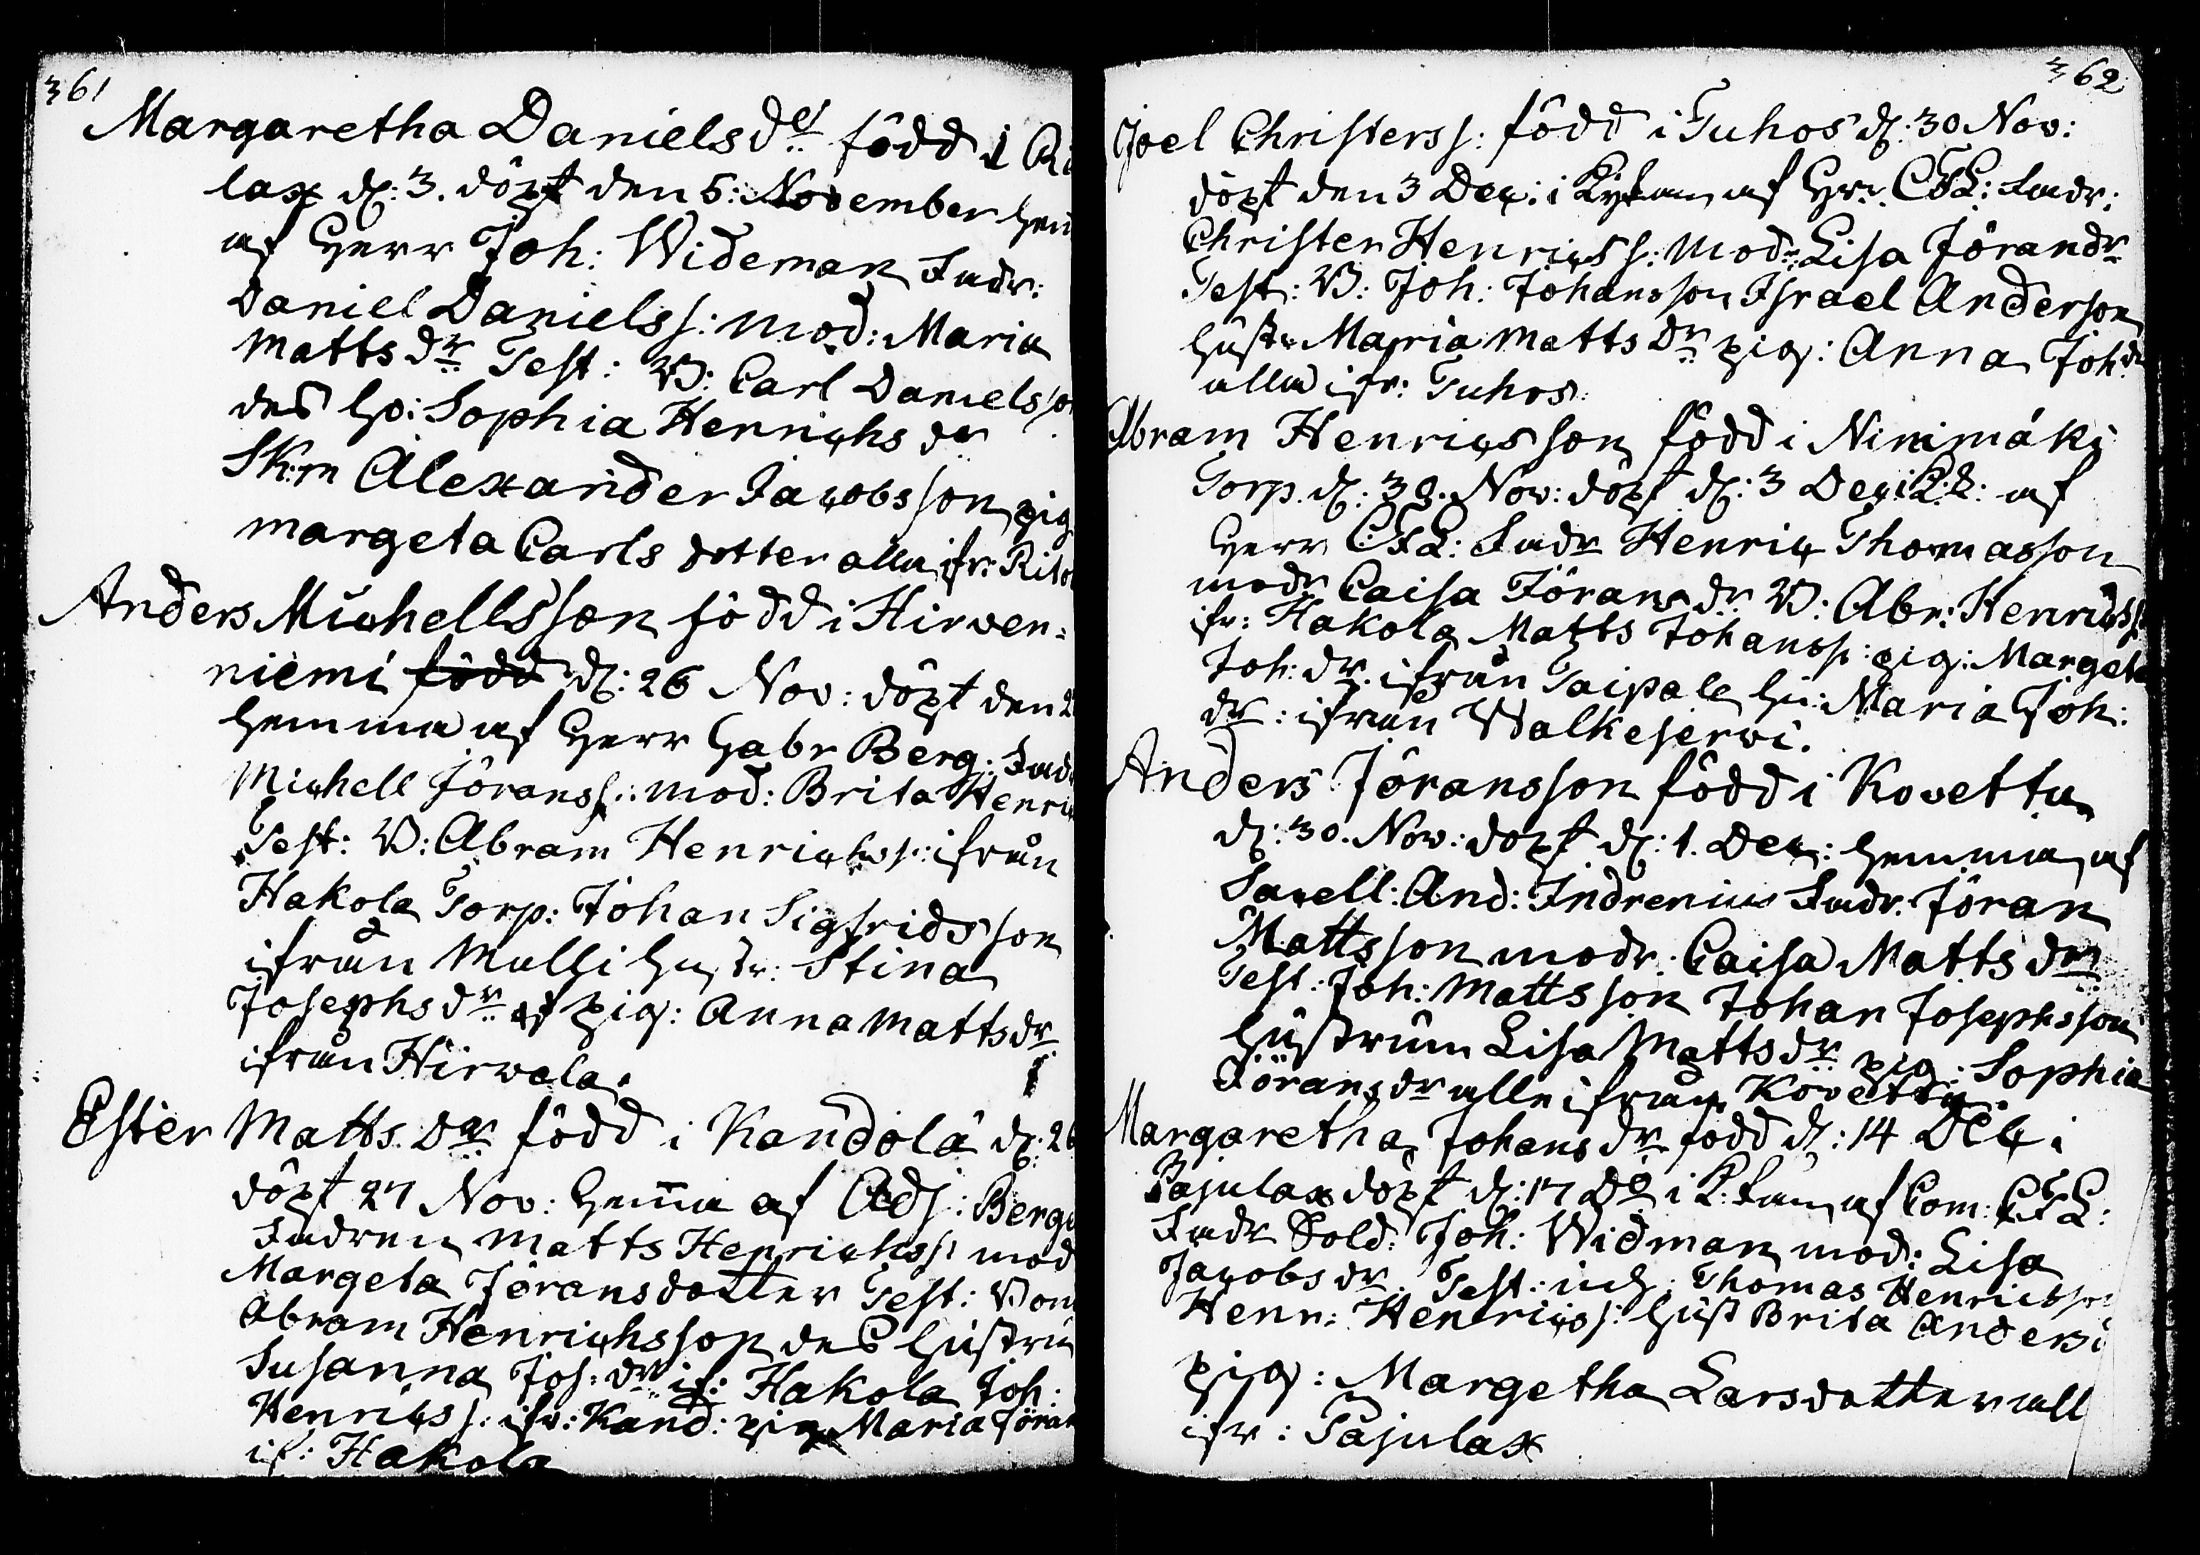 361
Margaretha Daniels dr född i Ri
lax d: 3. döpt den 5: November hem
af Herr Joh: Wideman Fadr:
Daniel Danielss: mod: Maria
Matts dr Test: B: Carl Danielsso
des ho: Sophia Henrichs dr
Sk:m Alexander Jacobsson pig
margeta Carls dotter alla ifr: Rito
Anders Michellsson född i Hirven=
niemi född d: 26 Nov: döpt den 2
hemma af Herr Gabr Berg: Fad
Michell Jöranss: mod: Brita Henri
Test: B: Abram Henrichss: ifrån
Hakola Torp: Johan Sigfridsson
ifrån Mulli hustr: Stina
Josephs dr pig: Anna Matts dr
ifrån Hirvala.
Ester Matts dr född i Kandola d: 26
döpt 27 Nov: hema af Adj: Berg
Fadren Matts Henrichss: mod
Margeta Jöransdotter Test: Bon
Abram Henrichsson des hustru
Susanna Jos: dr if: Hakola Joh:
Henricss: ifr: Kand: pig Maria Jöran
if: Hakola
362
Joel Christerss: född i Tuhos d: 30 Nov:
döpt den 3 Dec: i Kyrkan af Hr: CFL: Fadr:
Christer Henricss: Mod: Lisa Jörandr
Test: B: Joh: Johansson Israel Anderson
hustr Maria Matts dr pig: Anna Joh dr
alla ifr: Tuhos.
Abram Henricsson född i Ninimäki
Torp. d: 30. Nov: döpt d: 3 Dec: i K:k: af
Herr CFL: Fadr Henric Thomasson
modr Caisa Jörans dr B: Abr: Henricss
ifr: Hakola Matts Johanss: pig: Margeta
Joh: dr. ifrån Taipale hu: Maria Joh:
dr: ifrån Walkeserwi.
Anders Jöransson född i Kovettu
d: 30. Nov: döpt d: 1. Dec: hemma af
Sacell: And: Indrenius Fadr. Jöran
Mattsson modr. Caisa Matts dr
Test: Joh: Mattsson Johan Josephsson
hustrun Lisa Matts dr pig: Sophia
Jörans dr alle ifrån Kovettu.
Margaretha Johans dr född d: 14 Dec i
Pajulax döpt d: 17 Do i K:kan af Com: CFL:
Fadr Sold: Joh: Widman mod: Lisa
Jacobs dr Test: inh: Thomas Henricsson
Henr: Henricss: hust Brita Anders
pig: Margetha Larsdotter all
ifr: Pajulax